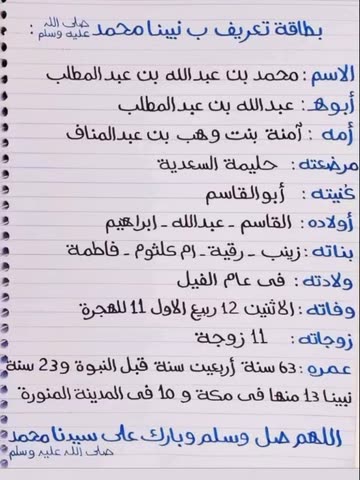 بطاقة تعريف ب نبينا محمد صلى الله عليه وسلم :
الاسم : محمد بن عبدالله بن عبدالمطلب
أبوه : عبدالله بن عبدالمطلب
أمه : آمنة بنت وهب بن عبدالمناف
مرضعته : حليمة السعدية
كنيته : أبوالقاسم
أولاده : القاسم - عبدالله - ابراهيم
بناته : زينب - رقية - ام كلثوم - فاطمة
ولادته : فى عام الفيل
وفاته : الاثنين 12 ربيع الاول 11 للهجرة
زوجاته : 11 زوجة
عمره : 63 سنة أربعين سنة قبل النبوة و23 سنة
نبينا 13 منها فى مكة و 10 فى المدينة المنورة
اللهم صل وسلم وبارك على سيدنا محمد
صلى الله عليه وسلم